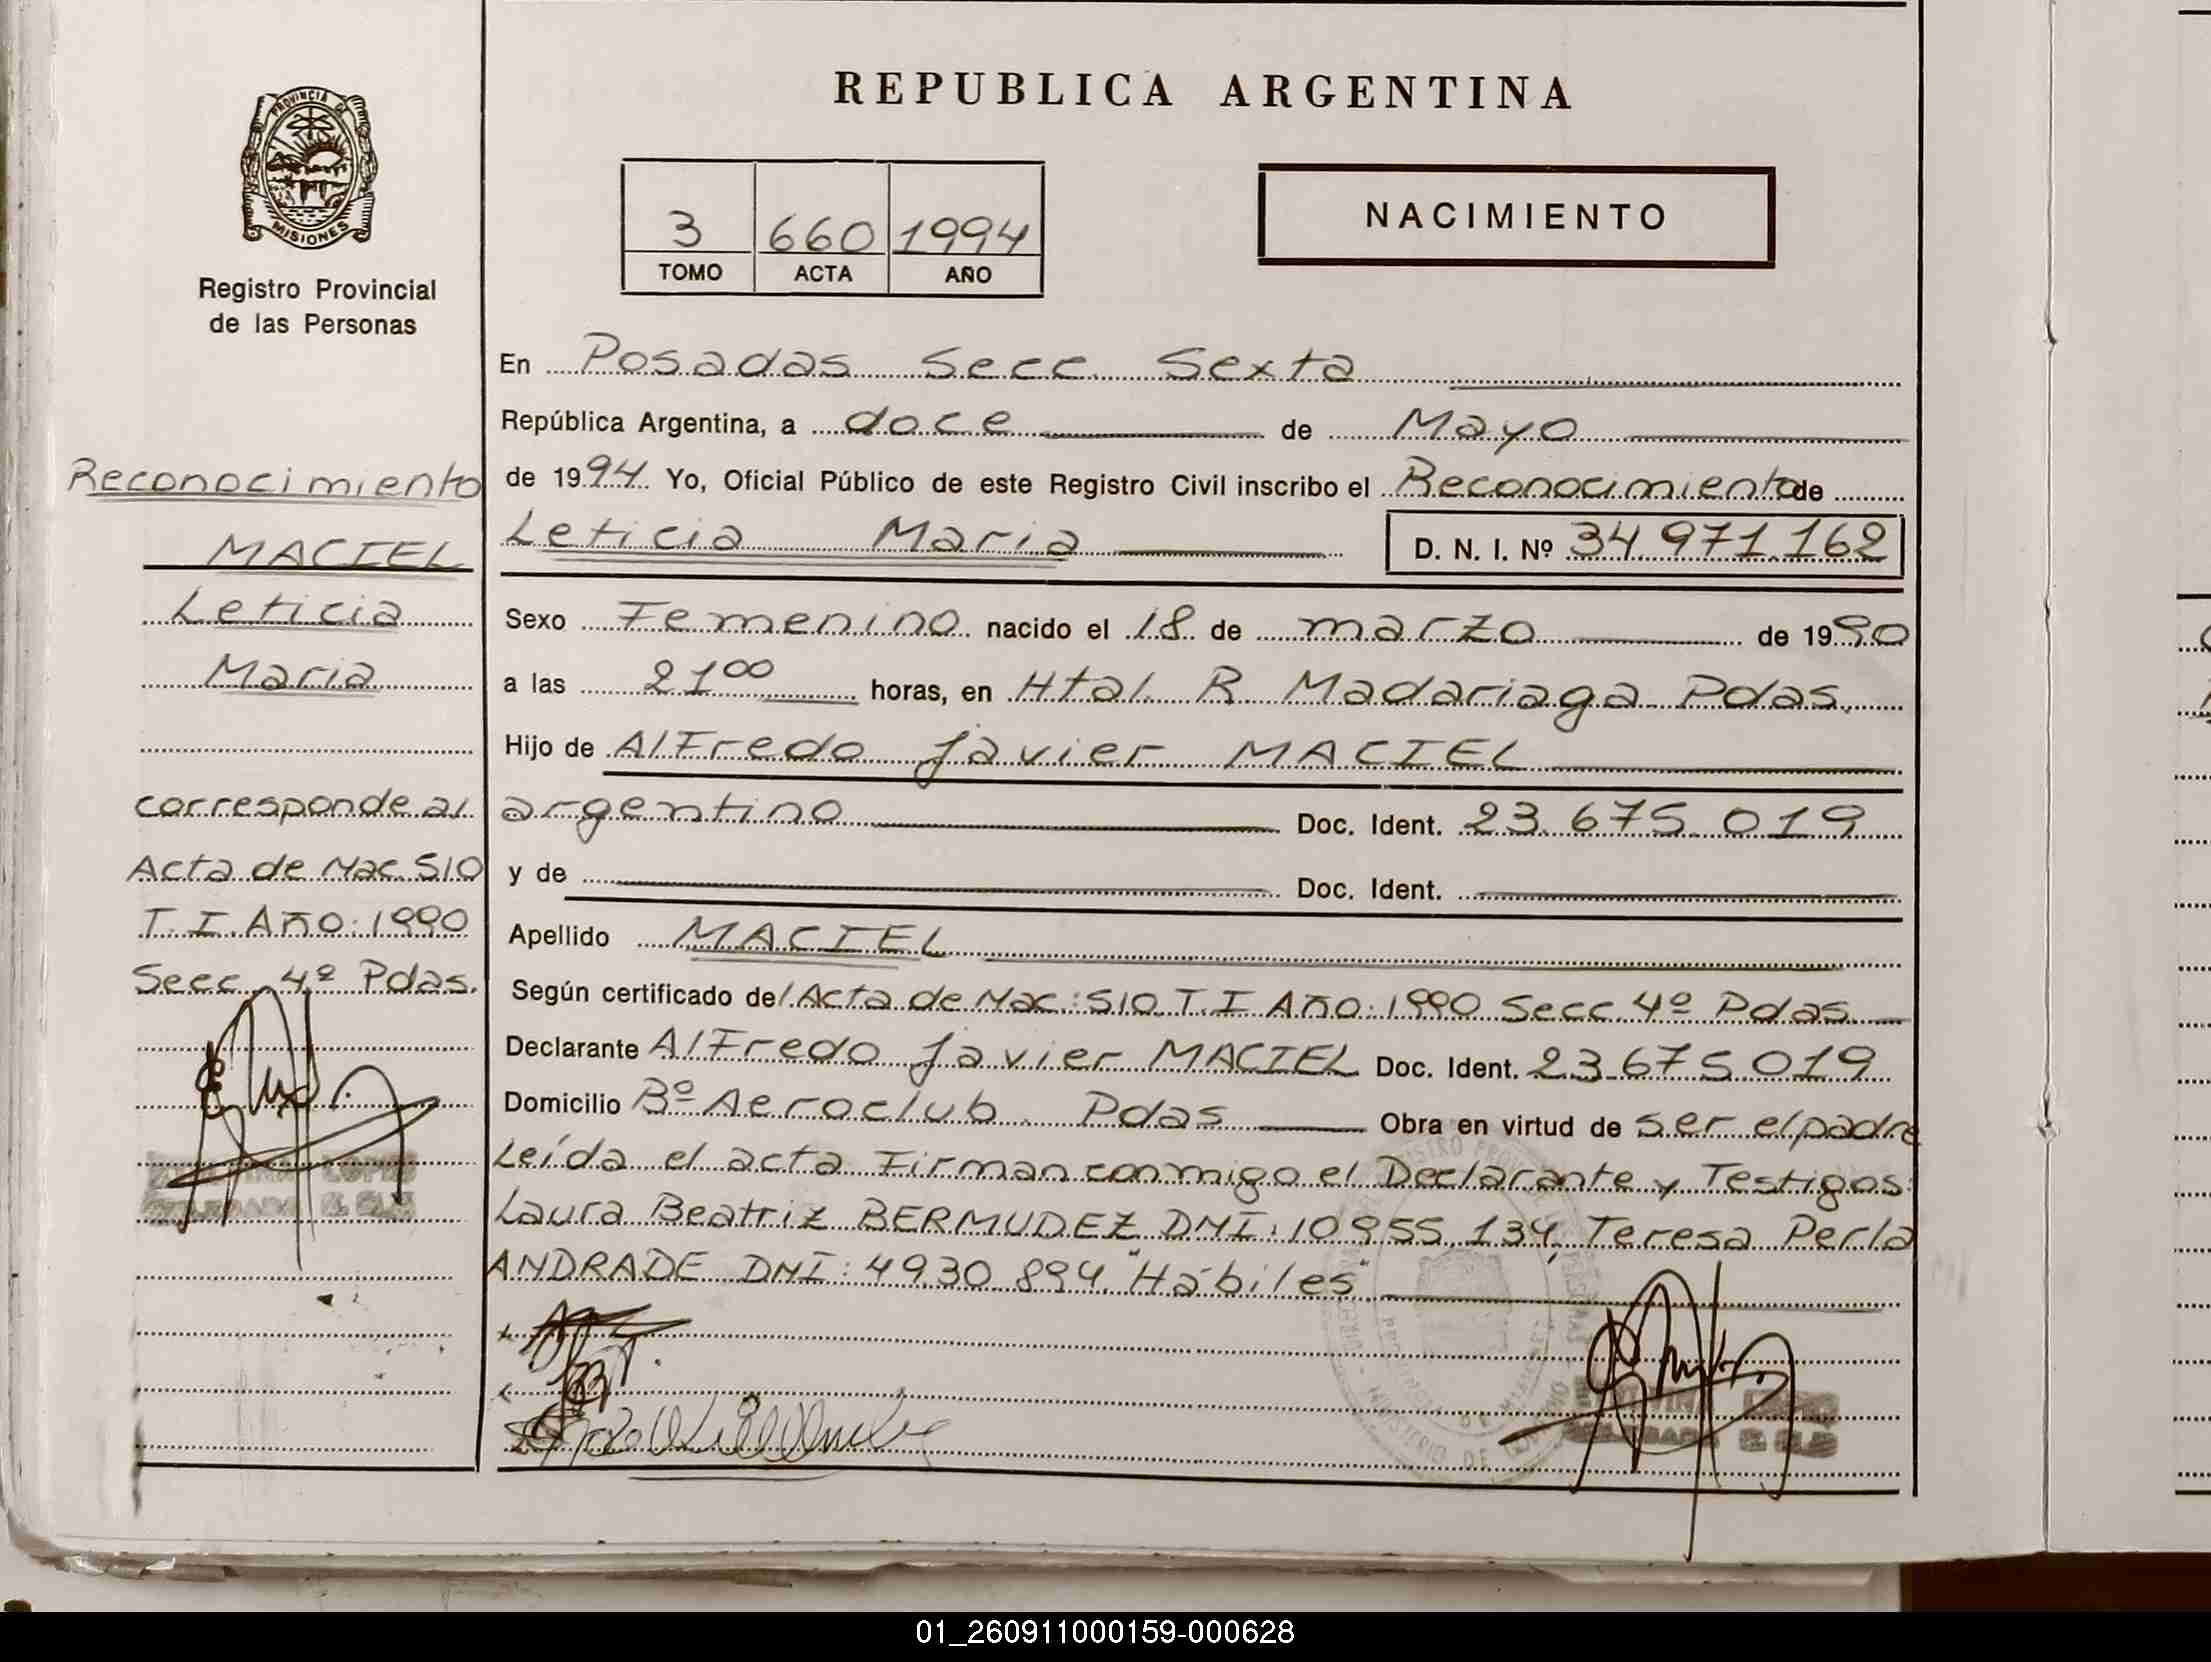 PROVINCIA DE
MISIONES
Registro Provincial
de las Personas
Reconocimiento
MACIEL
Leticia
Maria
corresponde al
Acta de Nac. 510
T. I. Año: 1990
Secc. 4º Pdas.
REPUBLICA ARGENTINA
3 660 1994
TOMO ACTA AÑO
NACIMIENTO
En Posadas Secc. Sexta
República Argentina, a doce de Mayo
de 1994 Yo, Oficial Público de este Registro Civil inscribo el Reconocimiento de
Leticia Maria D. N. I. Nº 34.971.162
Sexo Femenino nacido el 18 de marzo de 1990
a las 21⁰⁰ horas, en Htal. R Madariaga Pdas.
Hijo de Alfredo Javier MACIEL
argentino Doc. Ident. 23.675.019
y de Doc. Ident.
Apellido MACIEL
Según certificado del Acta de Nac.: 510 T. I Año: 1990 Secc. 4º Pdas.
Declarante Alfredo Javier MACIEL Doc. Ident. 23.675.019
Domicilio Bº Aeroclub. Pdas Obra en virtud de ser el padre
Leída el acta Firman conmigo el Declarante y Testigos:
Laura Beatriz BERMUDEZ DNI: 10.955.134, Teresa Perla
ANDRADE DNI: 4930.894. "Hábiles"
01_260911000159-000628